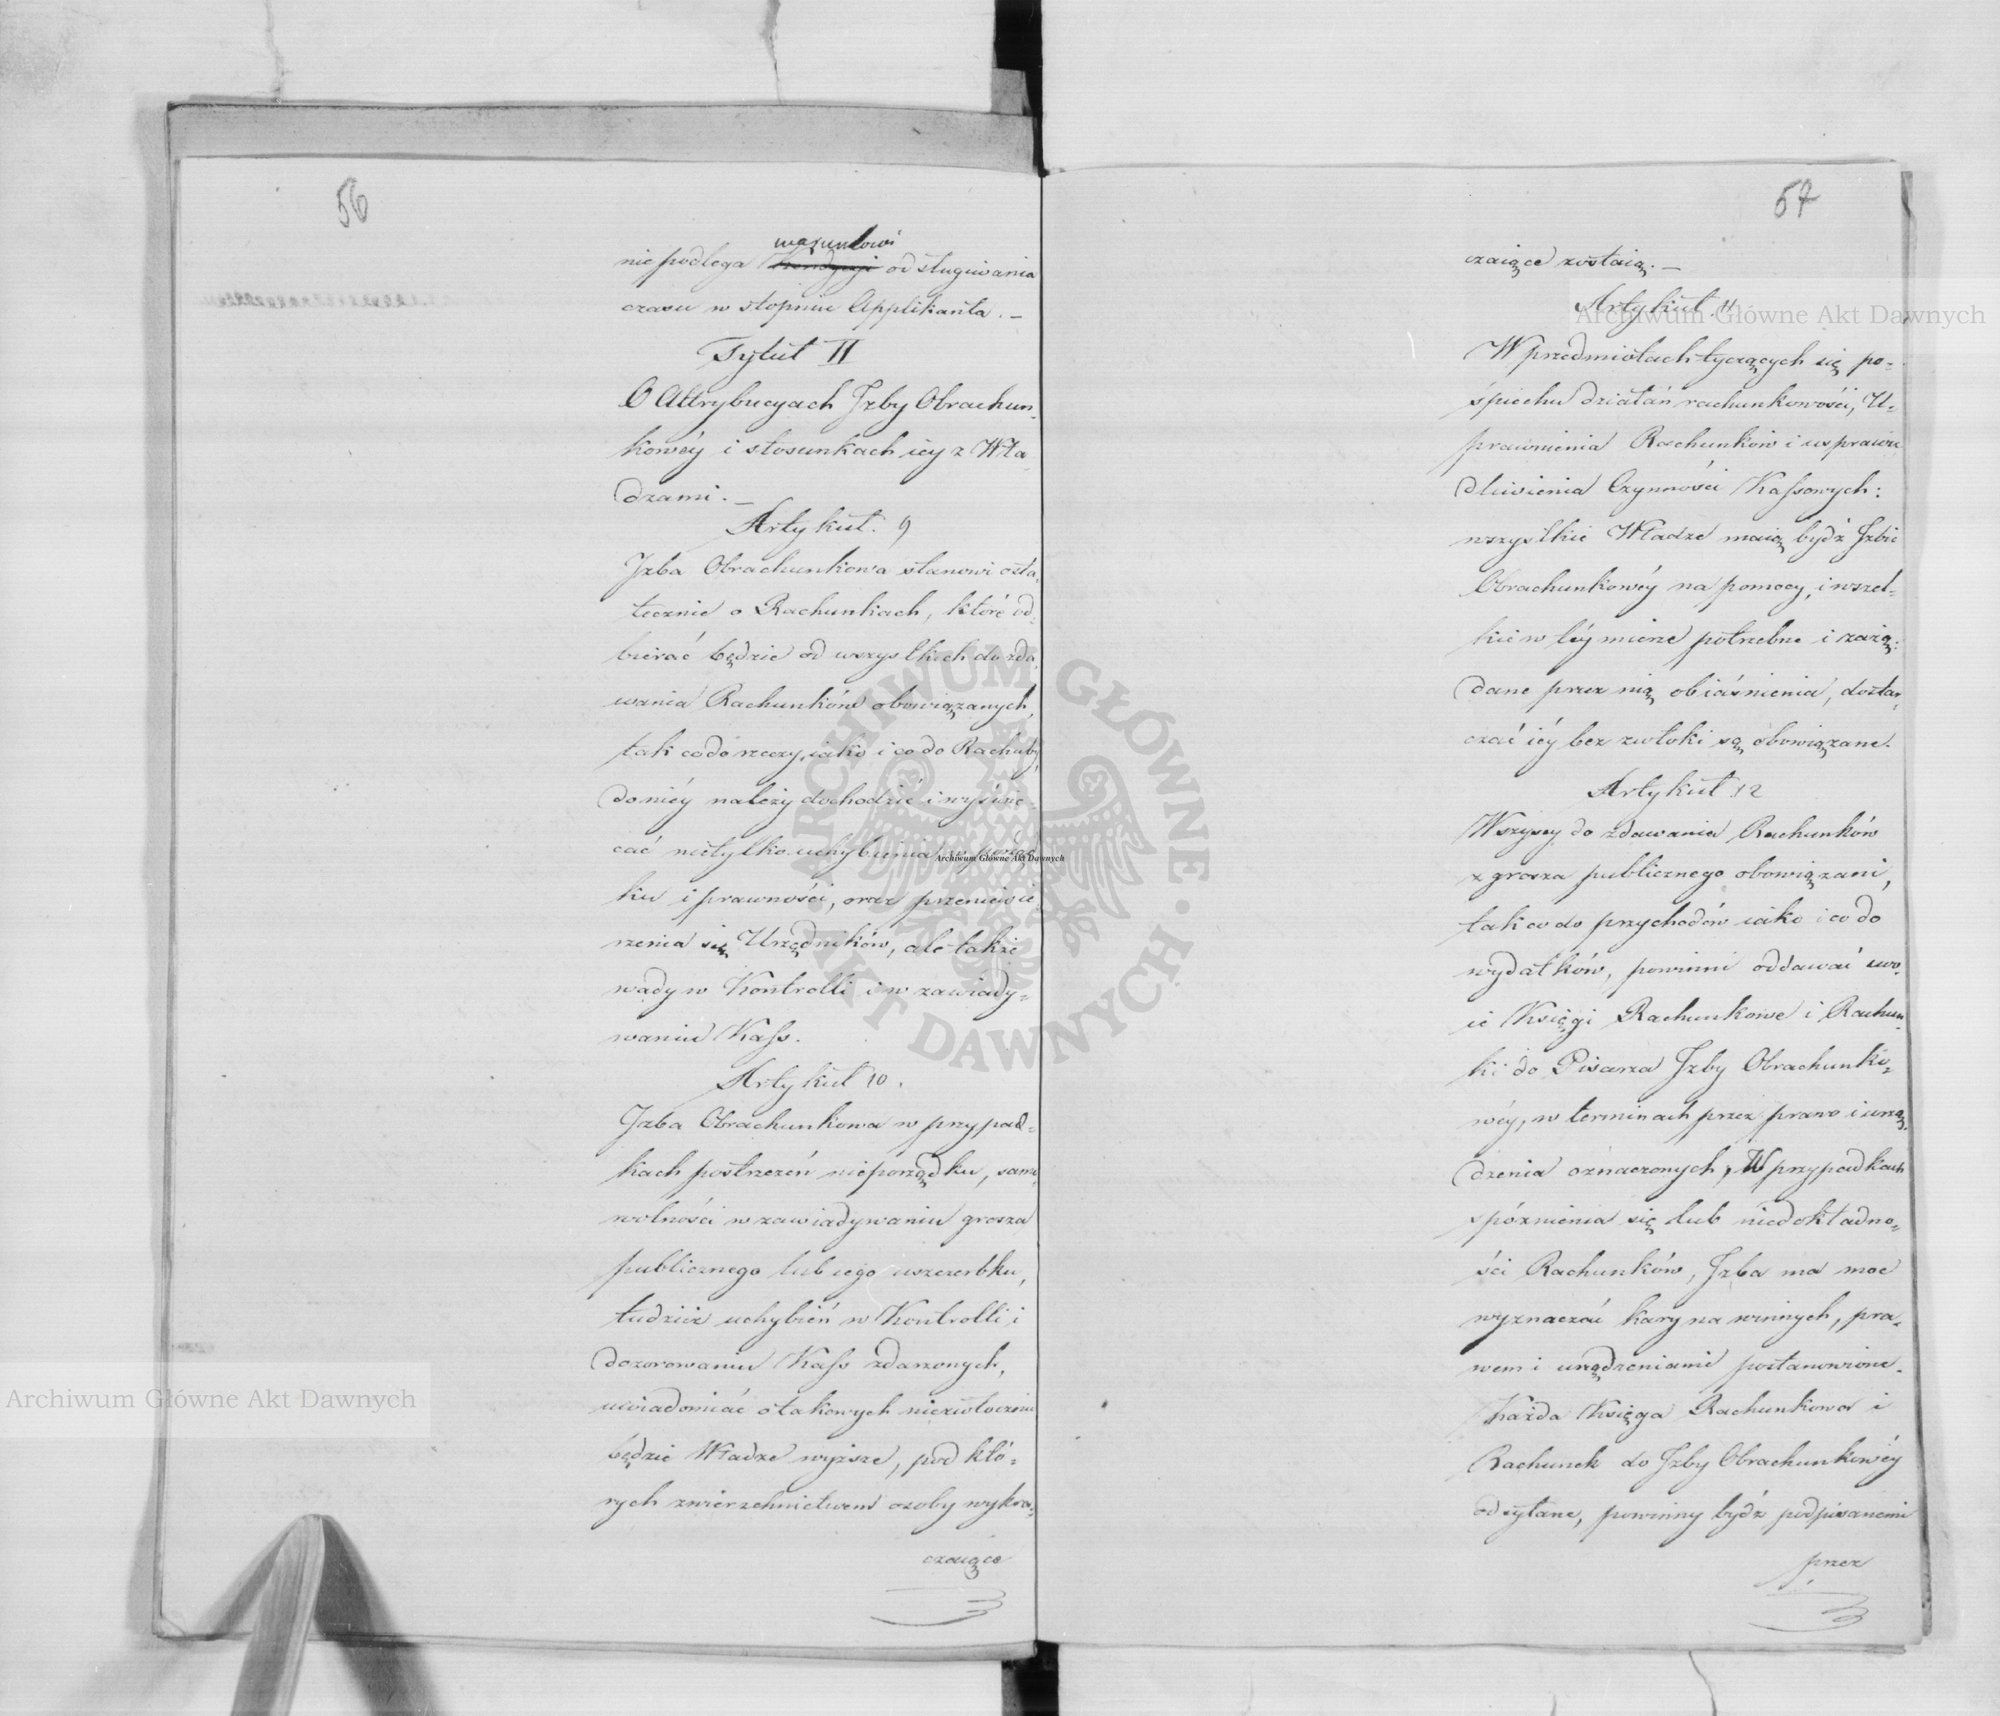 56
warunkowi
nie podlega Kondycyi odsługiwania
czasu w stopniu Applikanta. —
Tytuł II
O Attrybucyach Izby Obrachun-
kowéy i stosunkach iéy z Wła-
dzami. —
Artykuł. 9
Izba Obrachunkowa stanowi osta-
tecznie o Rachunkach, które od-
bierać będzie od wszystkich do zda-
wania Rachunków obowiązanych,
tak co do rzeczy, iako i co do Rachuby,
do niéy należy dochodzić i wyświe-
cać nietylko uchybienia w porząd
ku i prawności, oraz przeniewie
rzenia się Urzędników, ale także
wady w Kontrolli i w zawiady-
waniu Kass.
Artykuł 10.
Izba Obrachunkowa w przypad-
kach postrzeżeń nieporządku, samo-
wolności w zawiadywaniu grosza
publicznego lub iego uszczerbku,
tudzież uchybień w Kontrolli i
dozorowaniu Kass zdarzonych,
uwiadomiać o takowych niezwłocznie
będzie Władze wyższe, pod któ-
rych zwierzchnictwem osoby wykra-
czaiące
57
czaiące zostaią. —
Artykuł 11
W przedmiotach tyczących się po-
śpiechu działań rachunkowości, U-
prawnienia Rachunków i usprawie
dliwienia Czynności Kassowych:
wszystkie Władze maią bydź Izbie
Obrachunkowéy na pomocy, i wszel-
kie w téy mierze potrzebne i zażą-
dane przez nią obiaśnienia, dostar-
czać iéy bez zwłoki są obowiązane.
Artykuł 12
Wszyscy do zdawania Rachunków
z grosza publicznego obowiązani,
tak co do przychodów iako i co do
wydatków, powinni oddawać swo-
ie Księgi Rachunkowe i Rachun-
ki do Pisarza Izby Obrachunko-
wéy, w terminach przez prawo i urzą-
dzenia oznaczonych, W przypadkach
spóźnienia się lub niedokładno-
ści Rachunków, Izba ma moc
wyznaczać kary na winnych, pra-
wem i urządzeniami postanowione.
Każda Księga Rachunkowa i
Rachunek do Izby Obrachunkowéy
odsyłane, powinny bydź podpisanemi
przez
Archiwum Główne Akt Dawnych
Archiwum Główne Akt Dawnych
Archiwum Główne Akt Dawnych
ARCHIWUM GŁÓWNE · AKT DAWNYCH ·